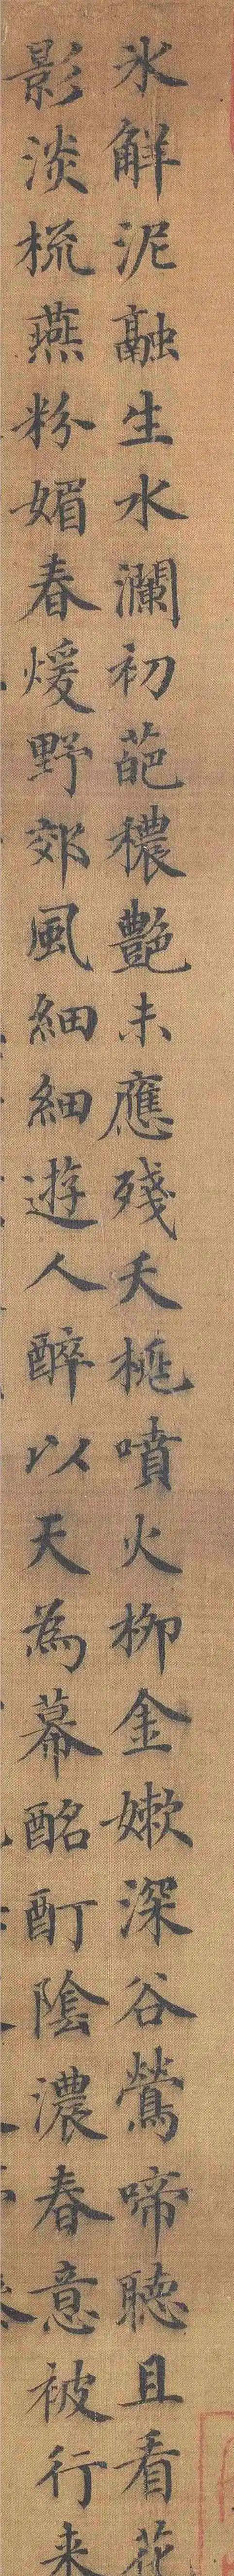 氷解泥融生水瀾初葩穠艶未應殘夭桃噴火柳金嫰深谷鶯啼聴且看花
影淡梳燕粉媚春煖野郊風細細遊人醉以天為幕酩酊陰濃春意被行来